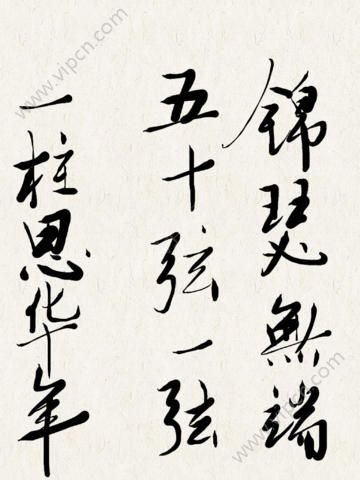 锦瑟無端
五十弦一弦
一柱思华年
www.vipcn.com
www.vipcn.com